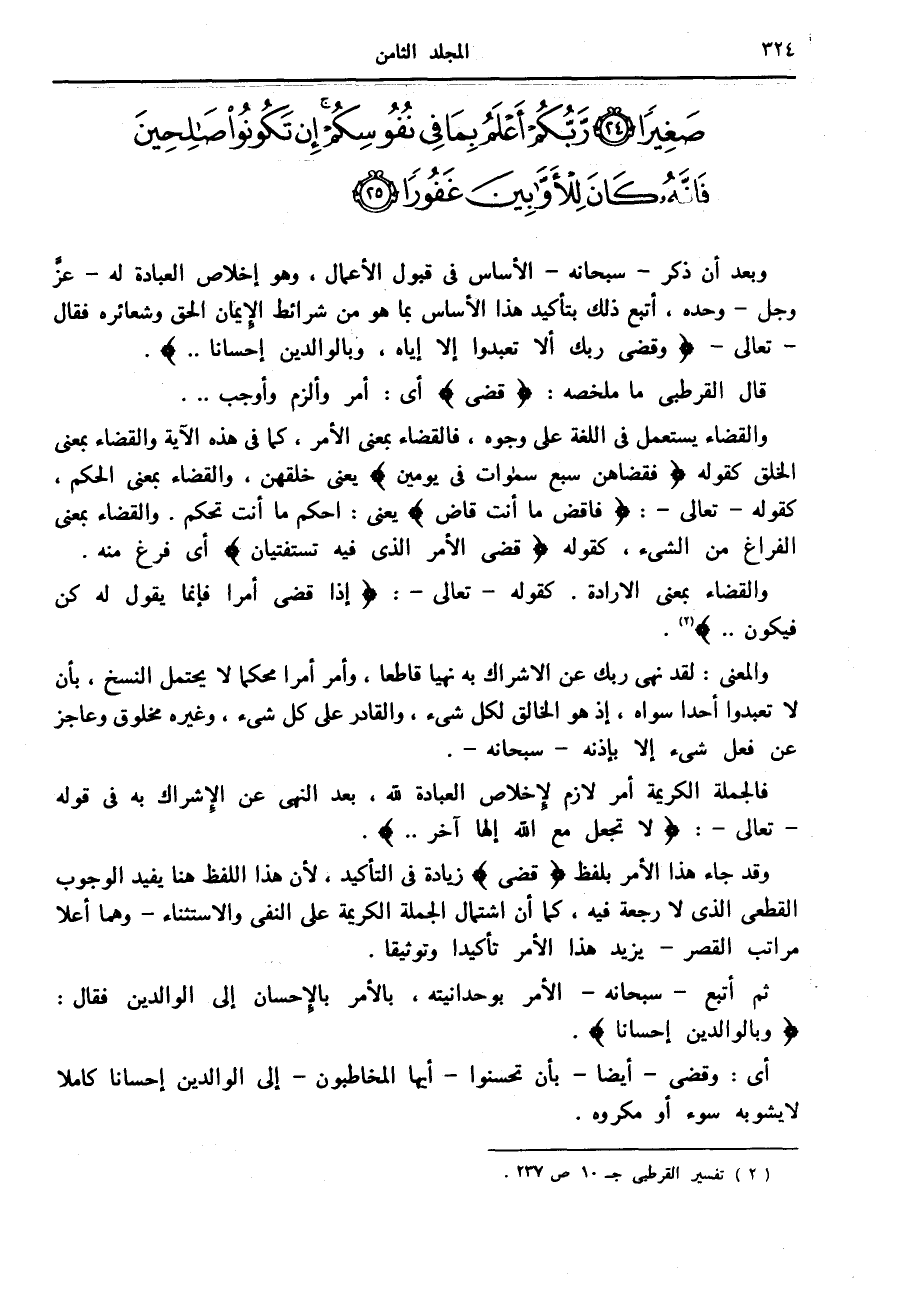 ٣٢٤
المجلد الثامن
صَغِيرًا ﴿٢٤﴾ رَّبُّكُمْ أَعْلَمُ بِمَا فِي نُفُوسِكُمْ ۚ إِن تَكُونُوا۟ صَٰلِحِينَ
فَإِنَّهُۥ كَانَ لِلْأَوَّٰبِينَ غَفُورًا ﴿٢٥﴾
وبعد أن ذكر – سبحانه – الأساس فى قبول الأعمال ، وهو إخلاص العبادة له – عزَّ
وجل – وحده ، أتبع ذلك بتأكيد هذا الأساس بما هو من شرائط الإِيمان الحق وشعائره فقال
– تعالى – ﴿ وقضى ربك ألا تعبدوا إلا إياه ، وبالوالدين إحسانا .. ﴾ .
قال القرطبى ما ملخصه : ﴿ قضى ﴾ أى : أمر وألزم وأوجب .. .
والقضاء يستعمل فى اللغة على وجوه ، فالقضاء بمعنى الأمر ، كما فى هذه الآية والقضاء بمعنى
الخلق كقوله ﴿ فقضاهن سبع سمٰوات فى يومين ﴾ يعنى خلقهن ، والقضاء بمعنى الحكم ،
كقوله – تعالى – : ﴿ فاقض ما أنت قاض ﴾ يعنى : احكم ما أنت تحكم . والقضاء بمعنى
الفراغ من الشىء ، كقوله ﴿ قضى الأمر الذى فيه تستفتيان ﴾ أى فرغ منه .
والقضاء بمعنى الارادة . كقوله – تعالى – : ﴿ إذا قضى أمرا فإنما يقول له كن
فيكون .. ﴾(٢) .
والمعنى : لقد نهى ربك عن الاشراك به نهيا قاطعا ، وأمر أمرا محكما لا يحتمل النسخ ، بأن
لا تعبدوا أحدا سواه ، إذ هو الخالق لكل شىء ، والقادر على كل شىء ، وغيره مخلوق وعاجز
عن فعل شىء إلا بإذنه – سبحانه – .
فالجملة الكريمة أمر لازم لإِخلاص العبادة لله ، بعد النهى عن الإِشراك به فى قوله
– تعالى – : ﴿ لا تجعل مع الله إلها آخر .. ﴾ .
وقد جاء هذا الأمر بلفظ ﴿ قضى ﴾ زيادة فى التأكيد ، لأن هذا اللفظ هنا يفيد الوجوب
القطعى الذى لا رجعة فيه ، كما أن اشتمال الجملة الكريمة على النفى والاستثناء – وهما أعلا
مراتب القصر – يزيد هذا الأمر تأكيدا وتوثيقا .
ثم أتبع – سبحانه – الأمر بوحدانيته ، بالأمر بالإِحسان إلى الوالدين فقال :
﴿ وبالوالدين إحسانا ﴾ .
أى : وقضى – أيضا – بأن تحسنوا – أيها المخاطبون – إلى الوالدين إحسانا كاملا
لايشوبه سوء أو مكروه .
( ٢ ) تفسير القرطبى جـ ١٠ ص ٢٣٧ .